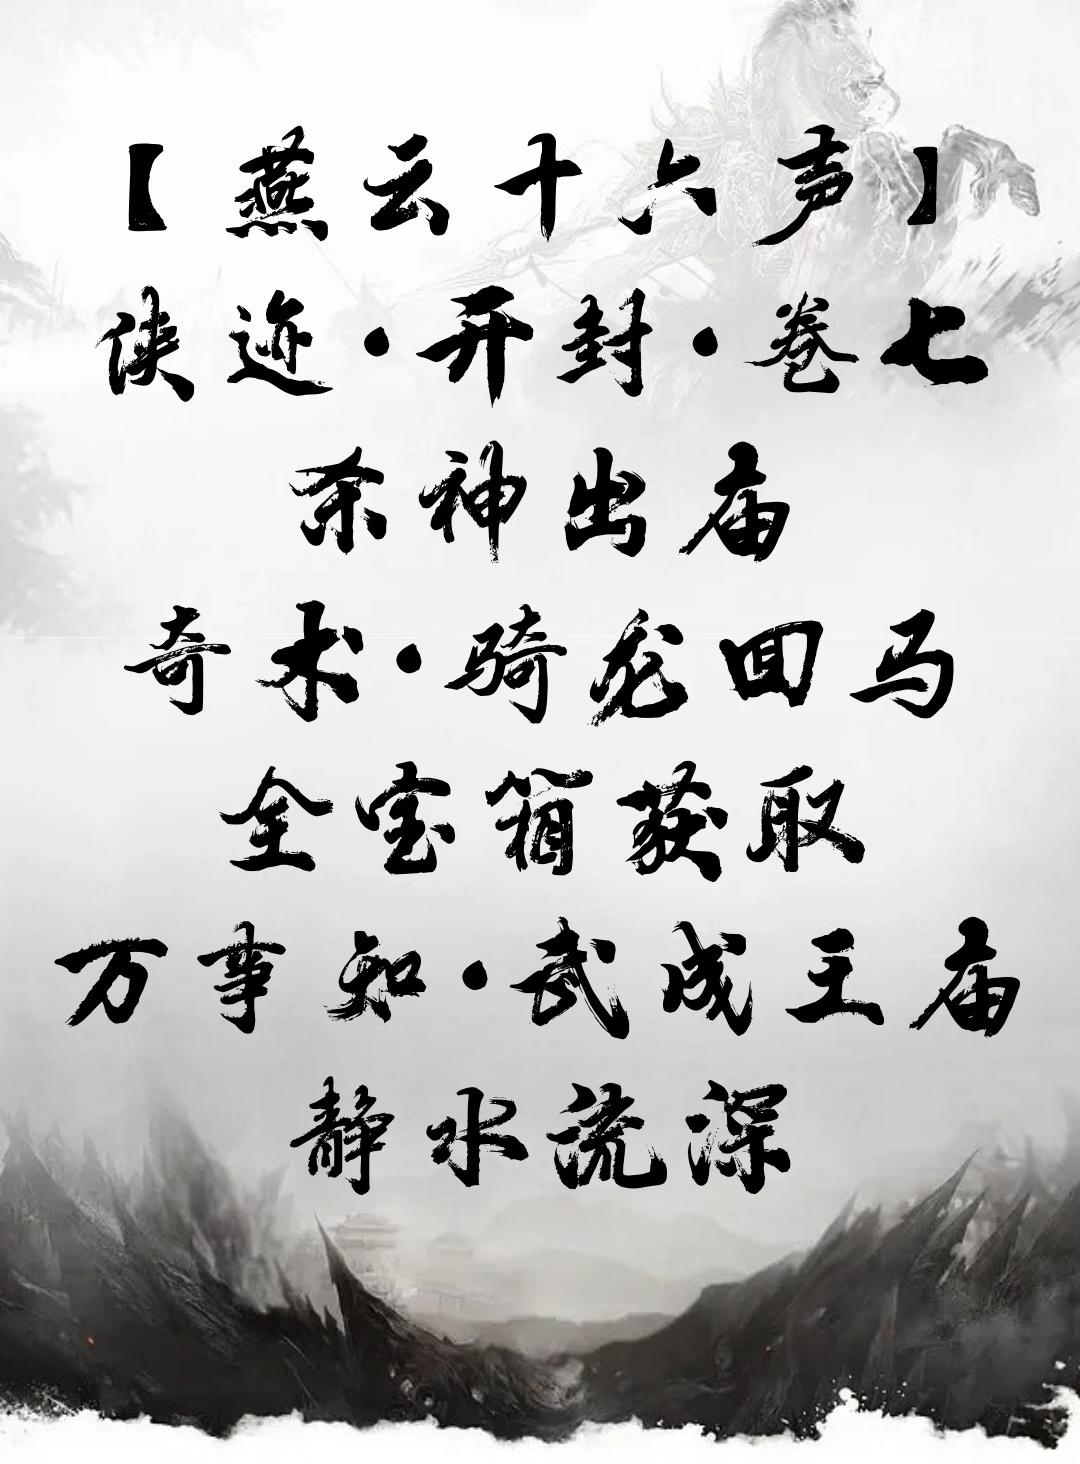 【燕云十六声】
侠迹·开封·卷七
杀神出庙
奇术·骑龙回马
全宝箱获取
万事知·武成王庙
静水流深